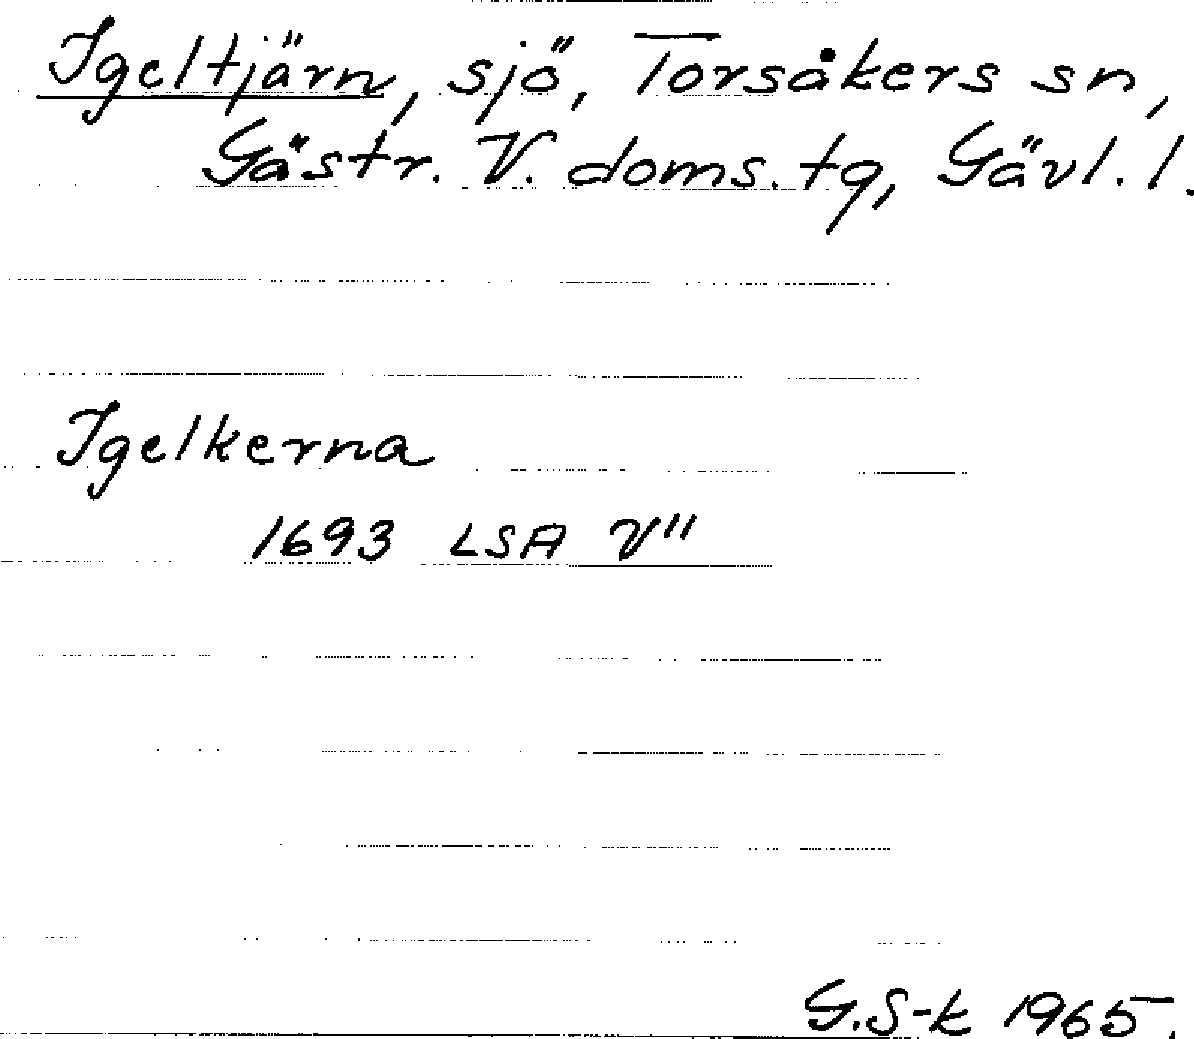 Igeltjärn, sjö, Torsåkers sn,
Gästr. V. doms. tg, Gävl. l.
Igelkerna
1693 LSA V"
G.S-k 1965.